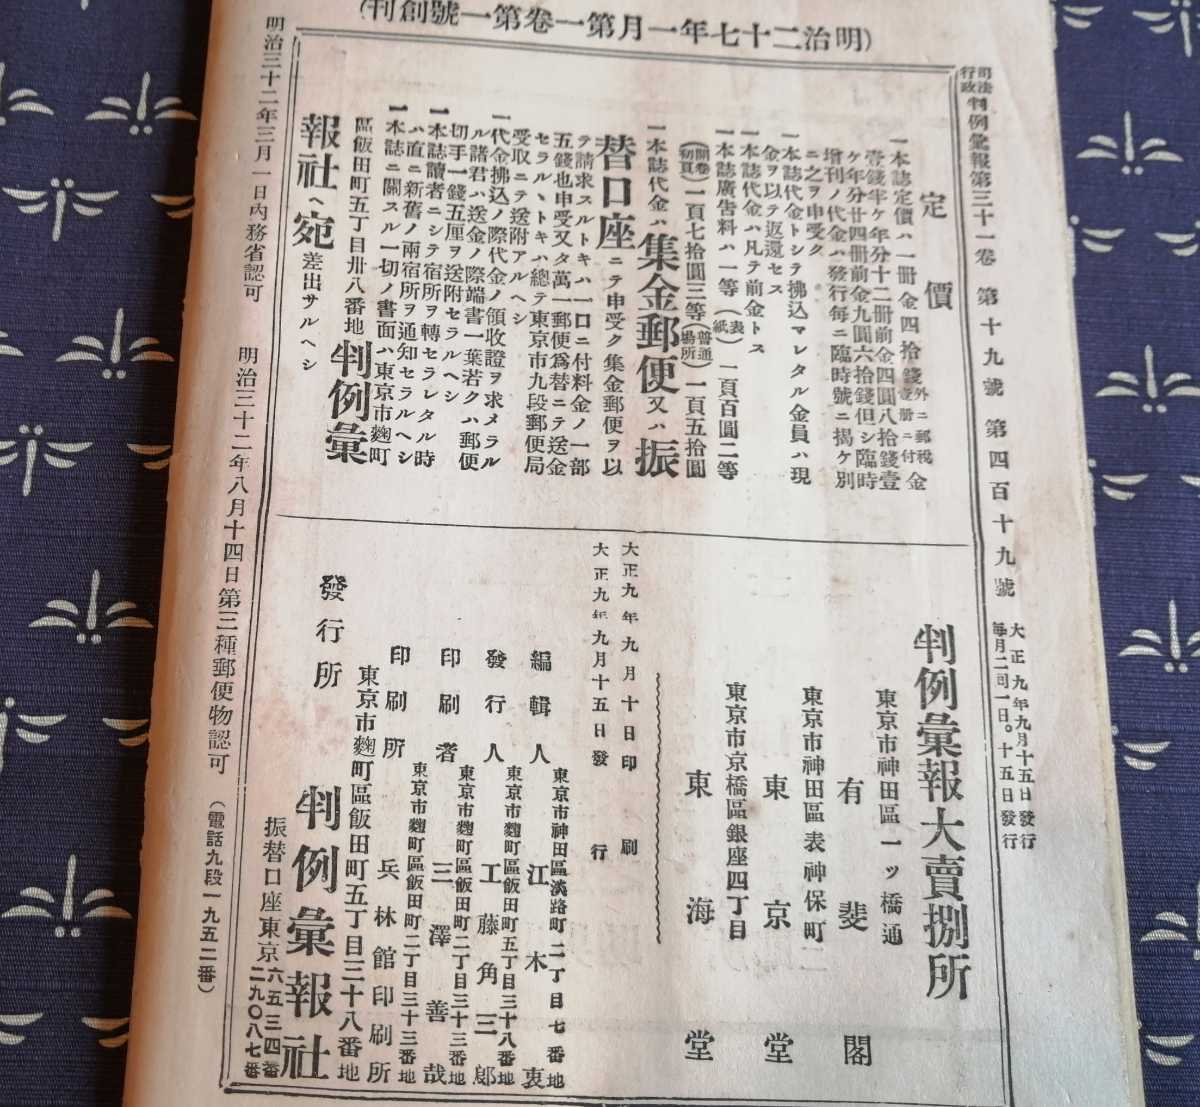 (明治二十七年一月第一卷第一號創刊)
司法
行政
判例彙報第三十一卷　第十九號　第四百十九號
大正九年九月十五日發行
每月二回一日。十五日發行
定價
一本誌定價ハ一冊金四拾錢外ニ郵稅壹冊ニ付金
壹錢半ケ年分十二冊前金四圓八拾錢壹
ケ年分廿四冊前金九圓六拾錢但シ臨時
增刊ノ代金ハ發行每ニ臨時號ニ揭ケ別
ニ之ヲ申受ク
一本誌代金トシテ拂込マレタル金員ハ現
金ヲ以テ返還セス
一本誌代金ハ凡テ前金トス
一本誌廣告料ハ一等(表紙)一頁百圓二等
(開卷初頁)一頁七拾圓三等(普通場所)一頁五拾圓
一本誌代金ハ集金郵便又ハ振
替口座ニテ申受ク集金郵便ヲ以
テ請求スルトキハ一口ニ付料金ノ一部
五錢也申受又タ萬一郵便爲替ニテ送金
セラルヽトキハ總テ東京市九段郵便局
受取ニテ送附アルヘシ
一代金拂込ノ際代金ノ領收證ヲ求メラル
ル諸君ハ送金ノ際端書一葉若クハ郵便
切手一錢五厘ヲ送附セラルヘシ
一本誌讀者ニシテ宿所ヲ轉セラレタル時
ハ直ニ新舊ノ兩宿所ヲ通知セラルヘシ
一本誌ニ關スル一切ノ書面ハ東京市麴町
區飯田町五丁目卅八番地判例彙
報社ヘ宛差出サルヘシ
判例彙報大賣捌所
東京市神田區一ッ橋通
有斐閣
東京市神田區表神保町
東京堂
東京市京橋區銀座四丁目
東海堂
大正九年九月十日印刷
大正九年九月十五日發行
東京市神田區淡路町二丁目七番地
編輯人　江木衷
東京市麴町區飯田町五丁目三十八番地
發行人　工藤角三郎
東京市麴町區飯田町二丁目三十三番地
印刷者　三澤善哉
東京市麴町區飯田町二丁目三十三番地
印刷所　兵林館印刷所
東京市麴町區飯田町五丁目三十八番地
發行所　判例彙報社
振替口座東京六五三四番
二九〇八七番
(電話九段一九五二番)
明治三十二年三月一日內務省認可　明治三十二年八月十四日第三種郵便物認可